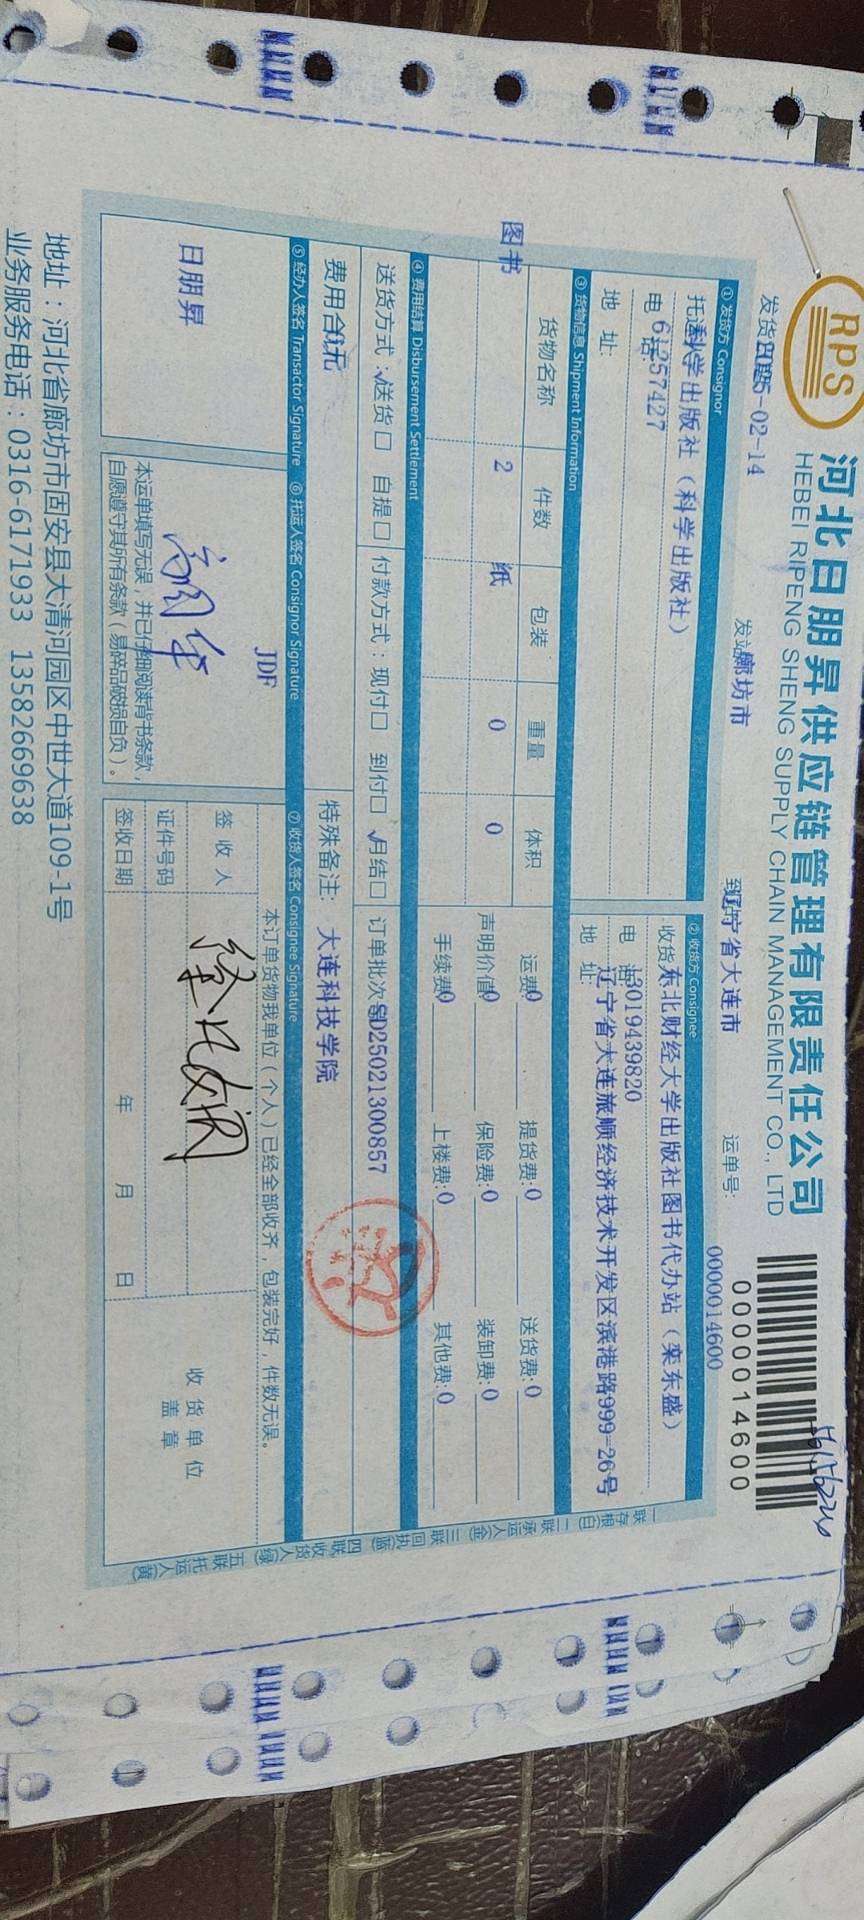 RPS
河北日朋昇供应链管理有限责任公司
HEBEI RIPENG SHENG SUPPLY CHAIN MANAGEMENT CO., LTD
0000014600
发货日期 2025-02-14 发站 廊坊市 到站 辽宁省大连市 运单号: 0000014600
① 发货方 Consignor ② 收货方 Consignee
科学出版社（科学出版社） 收货 东北财经大学出版社图书代办站（栾东盛）
电话 61257427 电话 13019439820
地 址: 地 址: 辽宁省大连旅顺经济技术开发区滨港路999-26号
③ 货物信息 Shipment Information
货物名称 件数 包装 重量 体积 运费 0 提货费: 0 送货费: 0
图书 2 纸 0 0 声明价值 0 保险费: 0 装卸费: 0
手续费 0 上楼费: 0 其他费: 0
④ 费用结算 Disbursement Settlement
送货方式: ✓送货□ 自提□ 付款方式: 现付□ 到付□ ✓月结□ 订单批次号 SD25021300857
费用合计 0元 特殊备注: 大连科技学院
⑤ 经办人签名 Transactor Signature ⑥ 托运人签名 Consignor Signature ⑦ 收货人签名 Consignee Signature
JDF 本订单货物我单位（个人）已经全部收齐，包装完好，件数无误。
日朋昇 签 收 人
证件号码
签收日期 年 月 日
收货单位
盖 章
本运单填写无误，并已仔细阅读背书条款，
自愿遵守其所有条款（易碎品破损自负）。
地址：河北省廊坊市固安县大清河园区中世大道109-1号
业务服务电话：0316-6171933 13582669638
一联存根(白) 二联承运人(金) 三联回执(蓝) 四联收货人(绿) 五联托运人(黄)